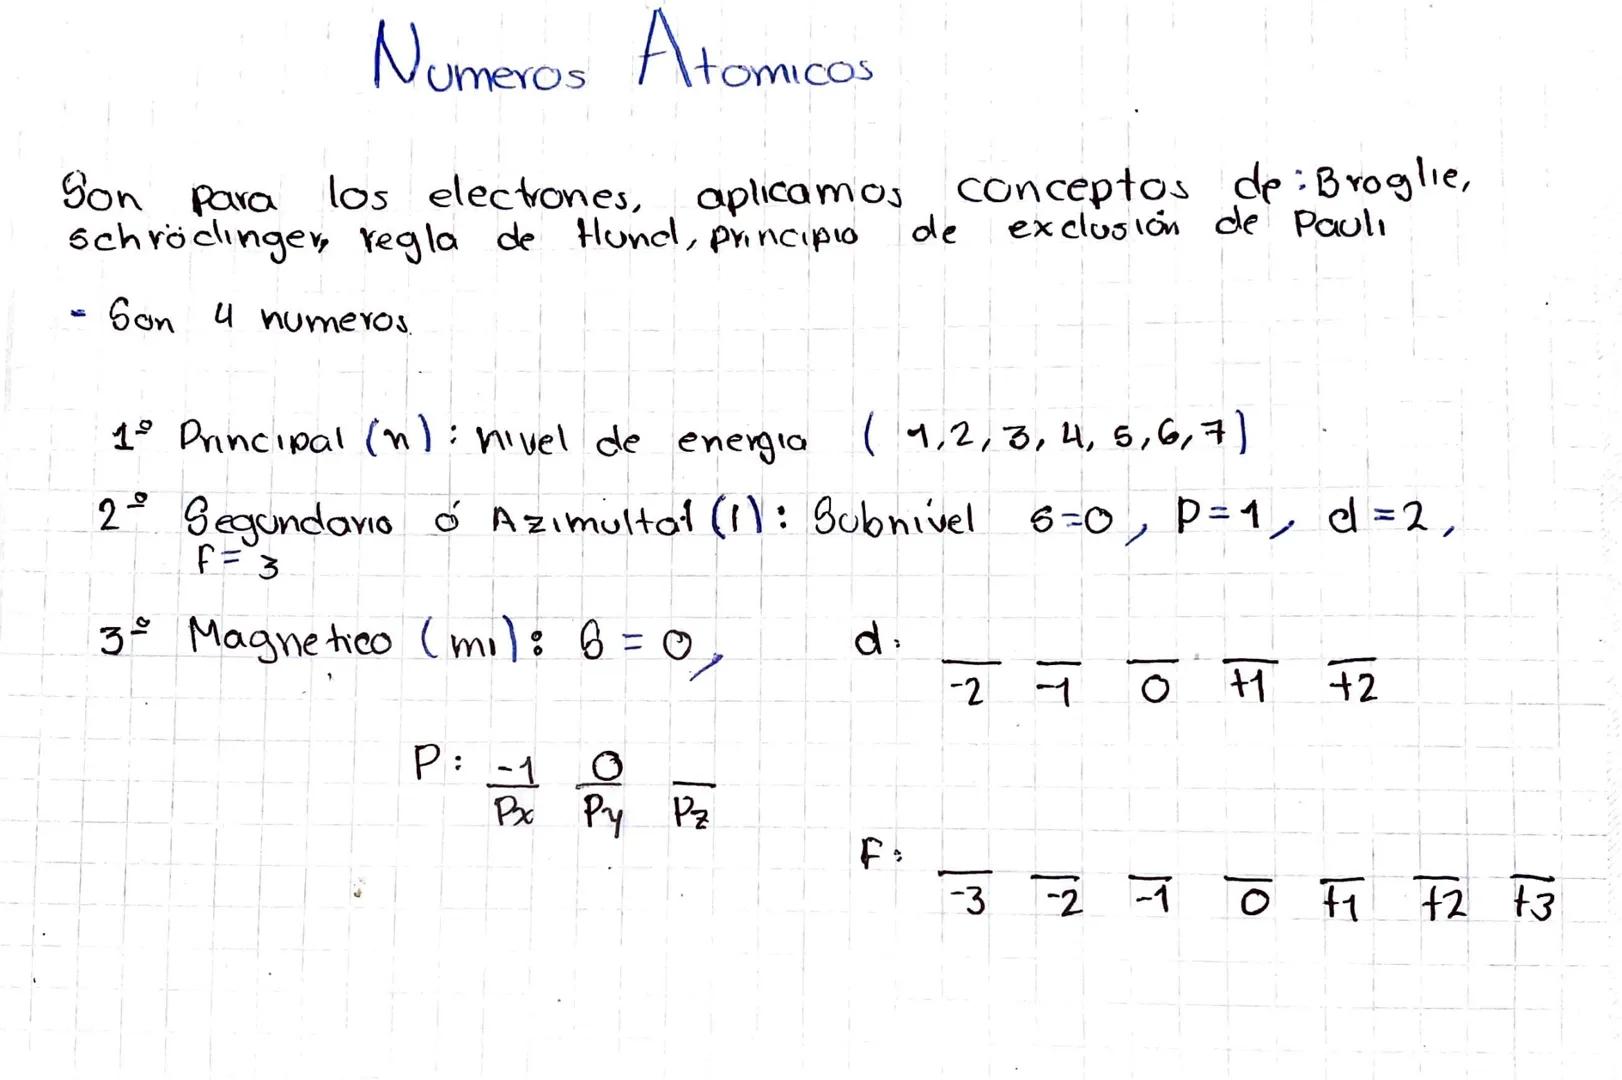 Numeros Atomicos
Son para los electrones, aplicamos conceptos de: Broglie,
schrödinger, regla de Hund, principio de exclusión de Pauli
- Son 4 numeros.
1º Principal (n): nivel de energia (1,2,3,4,5,6,7)
2º Segundario ó Azimultal (l): Subnivel s=0, p=1, d=2,
f=3
3º Magnetico (ml): s = 0, d:
-2 -1 0 +1 +2
P: -1 0
Px Py Pz
F:
-3 -2 -1 0 +1 +2 +3